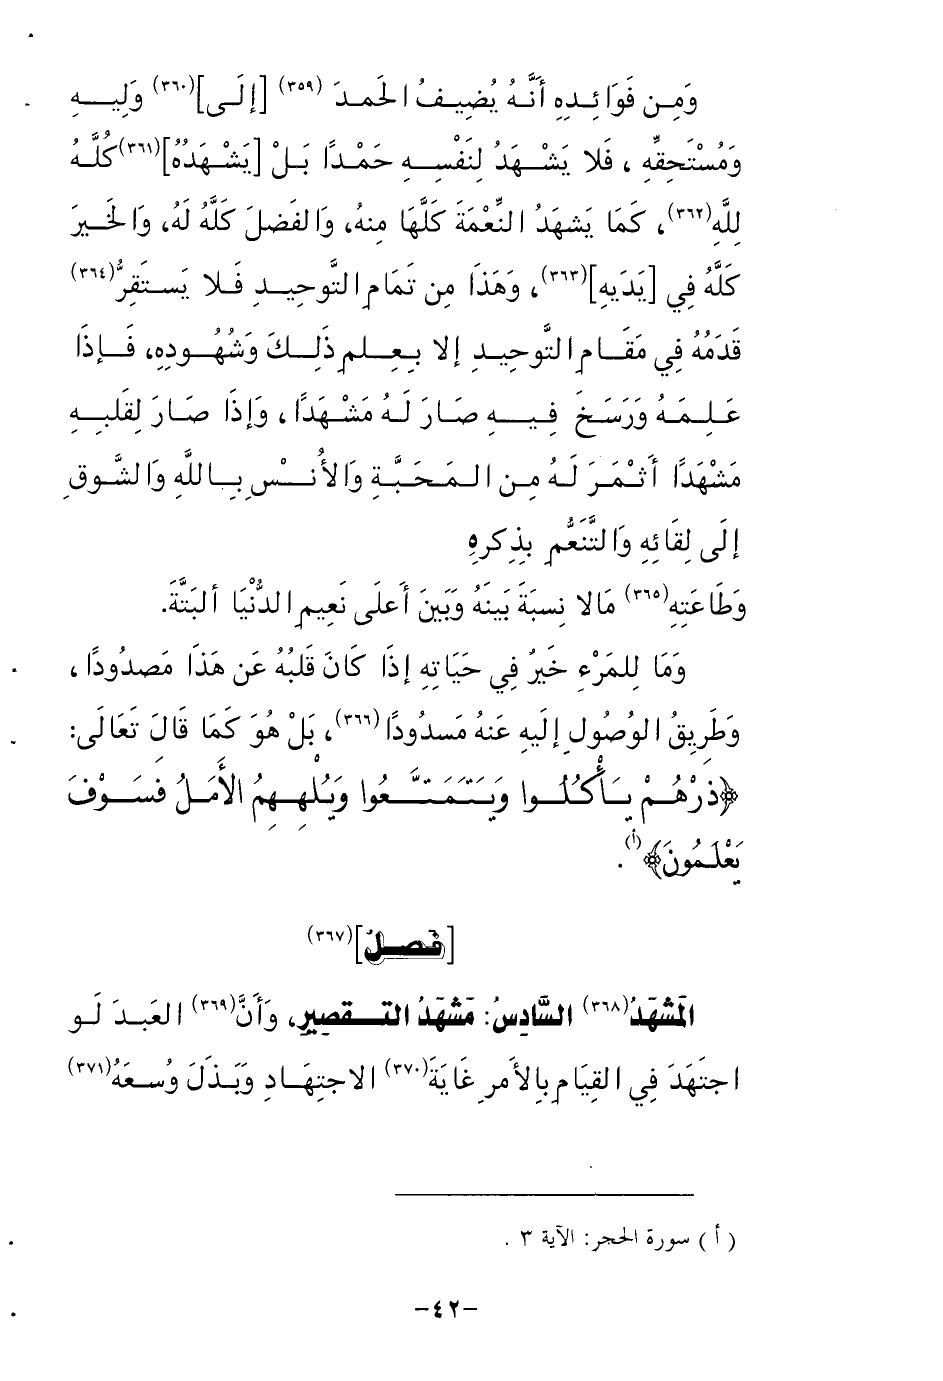 وَمِن فَوَائِدِهِ أَنَّهُ يُضِيفُ الحَمدَ (٣٥٩) [إلَى](٣٦٠) وَلِيهِ
وَمُسْتَحِقِّهِ ، فَلا يَشْهَدُ لنَفْسِهِ حَمْدًا بَلْ [يَشْهَدُهُ](٣٦١)كُلَّهُ
للَّهِ(٣٦٢)، كَمَا يَشهَدُ النِّعْمَةَ كَلَّهَا مِنهُ، وَالفَضلَ كَلَّهُ لَهُ، وَالخَيرَ
كَلَّهُ فِي [يَدَيهِ](٣٦٣)، وَهَذَا مِن تمَامِ التَّوحِيدِ فَلا يَستَقِرُّ(٣٦٤)
قَدَمُهُ فِي مَقَامِ التَّوحِيدِ إلا بِعِلمِ ذَلِكَ وَشُهُودِهِ، فَإذَا
عَلِمَهُ وَرَسَخَ فِيهِ صَارَ لَهُ مَشْهَدًا ، وَإذَا صَارَ لِقَلبِهِ
مَشْهَدًا أثْمَرَ لَهُ مِنَ المَحَبَّةِ وَالأُنْسِ بِاللَّهِ وَالشَّوقِ
إلَى لِقَائِهِ وَالتَّنَعُّمِ بِذِكرِهِ
وَطَاعَتِهِ(٣٦٥) مَالا نِسبَةَ بَينَهُ وَبَينَ أَعلَى نَعِيمِ الدُّنْيَا ألبَتَّةَ.
وَمَا لِلمَرْءِ خَيرُ فِي حَيَاتِهِ إذَا كَانَ قَلبُهُ عَن هَذَا مَصدُودًا ،
وَطَرِيقُ الوُصُولِ إلَيهِ عَنهُ مَسدُودًا(٣٦٦)، بَلْ هُوَ كَمَا قَالَ تَعَالَى:
﴿ذَرْهُمْ يَأْكُلُوا وَيَتَمَتَّعُوا وَيُلهِهِمُ الأَمَلُ فَسَوْفَ
يَعْلَمُونَ﴾(أ).
[فَصلٌ](٣٦٧)
المَشهَدُ(٣٦٨) السَّادِسُ: مَشهَدُ التَقصِيرِ، وَأَنَّ(٣٦٩) العَبدَ لَو
اجتَهَدَ فِي القِيَامِ بِالأَمرِ غَايَةَ(٣٧٠) الاجتِهَادِ وَبَذَلَ وُسعَهُ(٣٧١)
( أ ) سورة الحجر: الآية ٣ .
-٤٢-